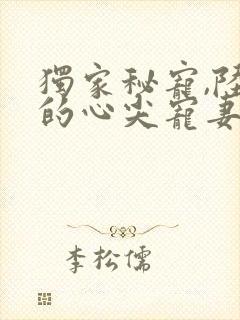 獨家秘寵,陸
的心尖寵妻
李松儒